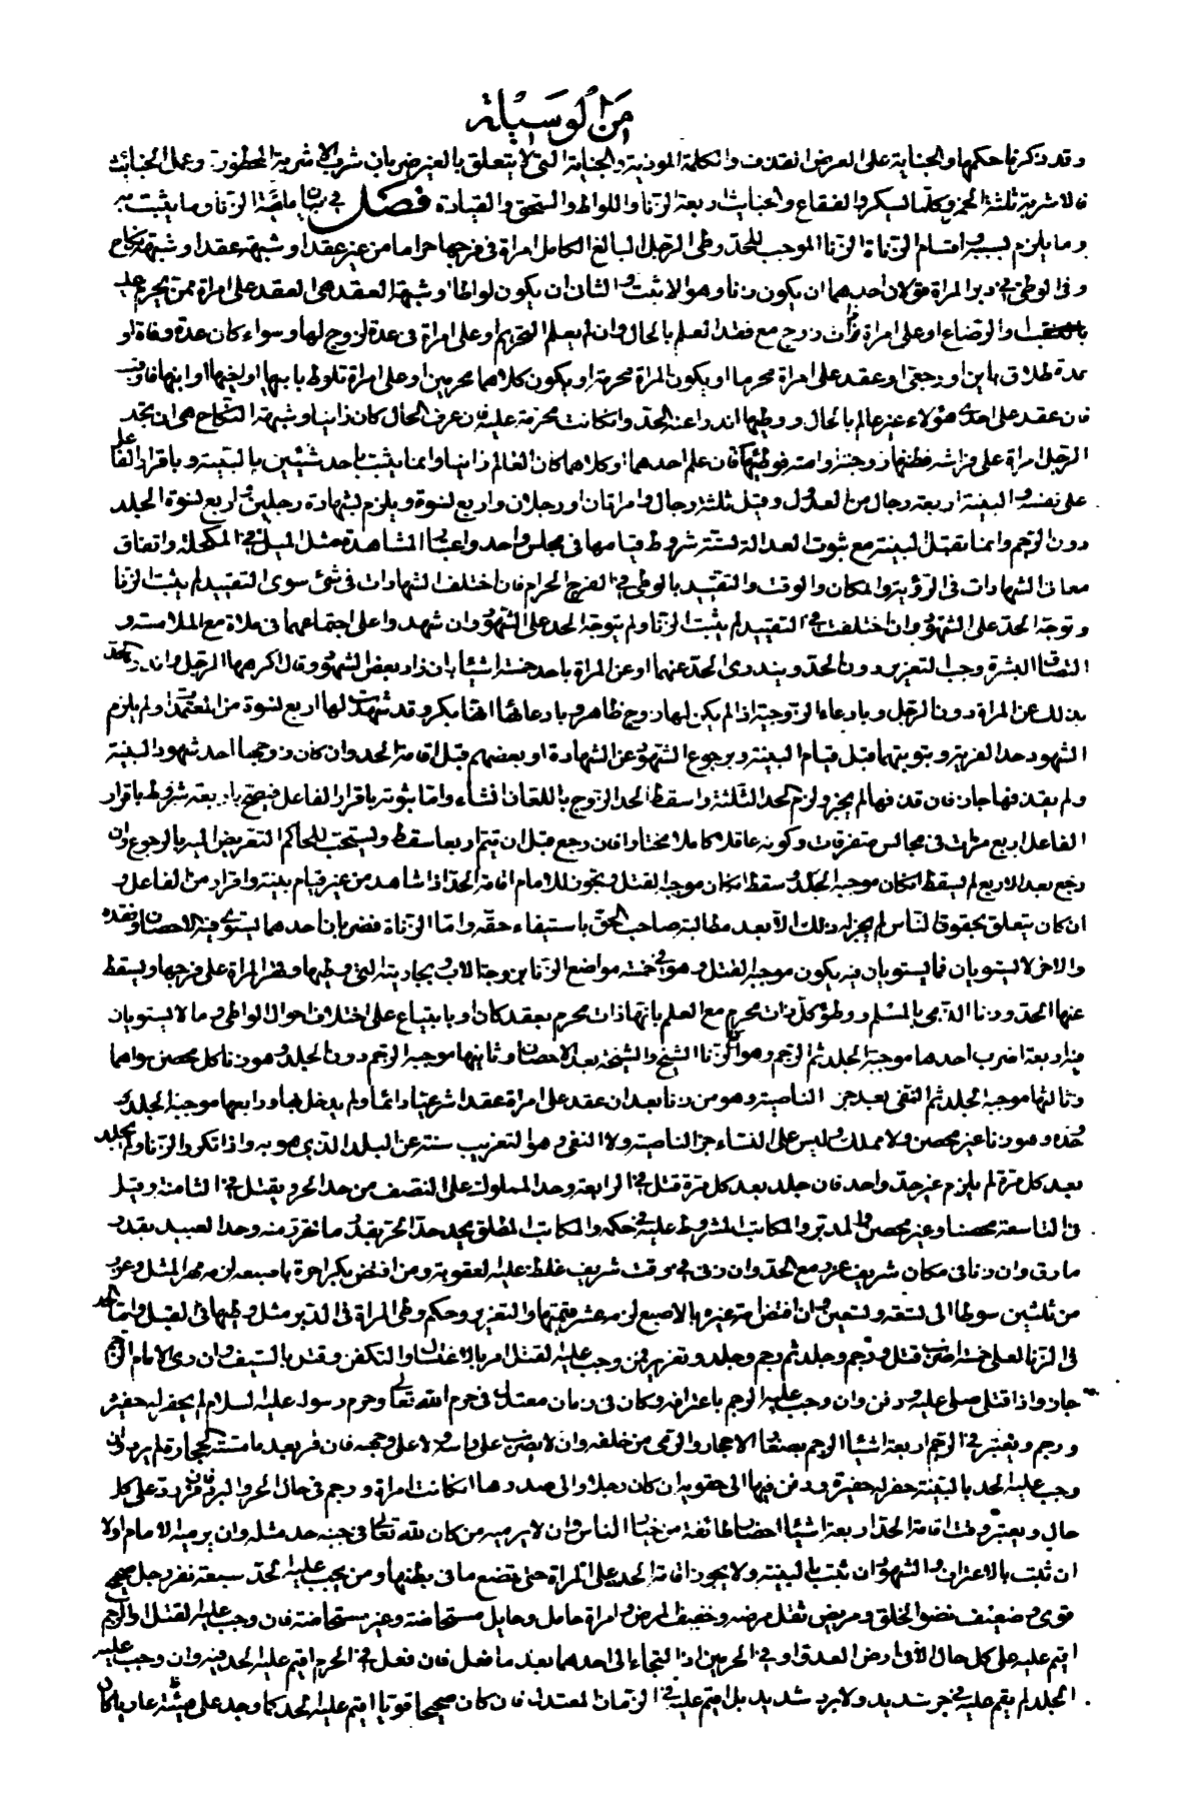 من الوسيلة
وقد ذكرنا حكمها والجناية على العرض القذف والكلمة الموذية والجناية التي لا يتعلق بالغير ضربان شرب الاشربة المحظورة وعمل الجنايات
فالاشربة ثلثة الخمر وكلما اسكر والفقاع والجنايات اربعة الزنا واللواط والسحق والقيادة فصل في بيان ماهية الزنا وما يثبت به
وما يلزم بسببه واقسام الزناة الزنا الموجب للحد وطى الرجل البالغ الكامل امراة في فرجها حراما من غير عقد او شبهة عقد او شبهة نكاح
وفي الوطى في دبر المراة قولان احدهما ان يكون زنا وهو الاثبت والثاني ان يكون لواطا وشبهة العقد هي العقد على امراة ممن يحرم عليه
والرضاع او على امراة ذات زوج مع فقد العلم بالحال وان لم يعلم التحريم او على امراة في عدة لزوج لها وسواء كان عدة وفاة او
عدة طلاق باين او رجعى او عقد على امراة محرما او يكون المراة محرمة او يكون كلاهما محرمين او على امراة تلوط بابيها او اخيها او ابنها فاوقب
فان عقد على احدى هؤلاء غير عالم بالحال ووطيها اندرا عنه الحد وان كانت محرمة عليه فان عرف الحال كان زانيا وشبهة النكاح هي ان يجد
الرجل امراة على فراشه فظنها زوجته او امته فوطئها فان علم احدهما او كلاهما كان العالم زانيا وانما يثبت باحد شيئين بالبينة وباقرار الفاعل
على نفسه والبينة اربعة رجال من العدول وقيل ثلثة رجال وامراتان او رجلان واربع نسوة ويلزم بشهادة رجلين واربع نسوة الجلد
دون الرجم وانما تقبل البينة مع ثبوت العدالة لستة شروط قيامها في مجلس واحد واعيان المشاهدة مثل الميل في المكحلة واتفاق
معاني الشهادات في الرؤية والمكان والوقت والتقييد بالوطى في الفرج الحرام فان اختلف الشهادات في شئ سوى التقييد لم يثبت الزنا
وتوجه الحد على الشهود وان اختلفت في التقييد لم يثبت الزنا ولم يتوجه الحد على الشهود وان شهدوا على اجتماعهما في ملاة مع الملامسة و
التصاق البشرة وجب التعزير دون الحد ويندرى الحد عنهما او عن المراة باحد خمسة اشياء ان زاد بعض الشهود وقال اكرهها الرجل واندرا الحد
بذلك عن المراة دون الرجل وبادعاء الزوجية اذا لم يكن لها زوج ظاهر وبادعائها انها بكر وقد شهدت لها اربع نسوة من المعتمدات ولم يلزم
الشهود حد الفرية وبتوبتهما قبل قيام البينة وبرجوع الشهود عن الشهادة او بعضهم قبل اقامة الحد وان كان زوجها احد شهود البينة
ولم يقذفها جاز فان قذفها لم يجز ولزم الحد الثلثة واسقط الحد الزوج باللعان ان شاء واما ثبوته باقرار الفاعل فيصح باربعة شروط باقرار
الفاعل اربع مرات في مجالس متفرقات وكونه عاقلا كاملا مختارا فان رجع قبل ان يتم اربعا سقط ويستحب للحاكم التعريض اليه بالرجوع وان
رجع بعد الاربع لم يسقط ان كان موجبه الجلد وسقط ان كان موجبه القتل ويجوز للامام اقامة الحد اذا شاهد من غير قيام بينة واقرار من الفاعل و
ان كان يتعلق بحقوق الناس لم يجز له ذلك الا بعد مطالبة صاحب الحق باستيفاء حقه واما الزناة فضربان احدهما يستوي فيه الاحصان وفقده
والاخر لا يستويان فما يستويان فيه يكون موجبه القتل وهو في خمسة مواضع الزنا بزوجة الاب وبجاريته التي وطيها وقهر المراة على فرجها ويسقط
عنها الحد وزنا الذمي بالمسلمة ووطؤ كل ذات محرم مع العلم بانها ذات محرم بعقد كان او بابتياع على اختلاف احوال الواطى وما لا يستويان
فيه اربعة اضرب احدها موجبه الجلد ثم الرجم وهو زنا الشيخ والشيخة بعد الاحصان وثانيها موجبه الرجم دون الجلد وهو زنا كل محصن سواهما
وثالثها موجبه الجلد ثم النفى بعد جز الناصية وهو من زنا بعد ان عقد على امراة عقدا شرعيا دائما ولم يدخل بها ورابعها موجبه الجلد
وحده وهو زنا غير محصن ولا مملك وليس على النساء جز الناصية ولا النفى وهو التغريب سنة عن البلد الذي هو به واذا تكرر الزنا ولم يجلد
بعد كل مرة لم يلزم غير حد واحد فان جلد بعد كل مرة قتل في الرابعة وحد المملوك على النصف من حد الحر ويقتل في الثامنة وقيل
في التاسعة محصنا وغير محصن والمدبر والمكاتب المشروط عليه في حكمه والمكاتب المطلق يحد حد الحر بقدر ما تحرر منه وحد العبيد بقدر
ما رق وان زنا في مكان شريف عزر مع الحد وان زنى في وقت شريف غلظ عليه العقوبة ومن افتض بكرا حرة باصبعه لزمه مهر المثل وعزر
من ثلثين سوطا الى تسعة وتسعين وان افتض امة غيره بالاصبع لزمه عشر قيمتها والتعزير وحكم وطى المراة في الدبر مثل وطيها في القبل واما الحد
في الزنا فعلى خمسة اضرب قتل ورجم وجلد ثم رجم وجلد وتعزير ومن وجب عليه القتل امر بالاغتسال والتكفن وقتل بالسيف وان رأى الامام الرجم
جاز واذا قتل صلى عليه ودفن وان وجب عليه الرجم باعترافه وكان في زمان معتدل في حرم الله تعالى وحرم رسوله عليه السلام لم يحفر له حفيرة
ورجم ويعتبر في الرجم اربعة اشياء الرجم بصغار الاحجار والرمى من خلفه وان لا يضرب على راسه ولا على وجهه فان فر بعد ما مسته الحجارة لم يرد وان
وجب عليه الحد بالبينة حفر له حفيرة ودفن فيها الى حقويه ان كان رجلا والى صدرها ان كانت امراة ورجم في حال الحر والبرد فان فر رد على كل
حال ويعتبر وقت اقامة الحد اربعة اشياء احضار طائفة من خيار الناس وان لا يرميه من كان لله تعالى في جنبه حد مثله وان يرميه الامام اولا
ان ثبت بالاعتراف والشهود ان ثبت بالبينة ولا يجوز اقامة الحد على المراة حتى تضع ما في بطنها ومن يجب عليه الحد سبعة نفر رجل صحيح
قوى وضعيف نضو الخلق ومريض ثقل مرضه وخفيف المرض وامراة حامل وحايل مستحاضة وغير مستحاضة فان وجب عليه القتل او الرجم
اقيم عليه على كل حال الا في ارض العدو او في الحرمين اذا التجاء الى احدهما بعد ما فعل فان فعل في الحرم اقيم عليه الحد فيه وان وجب عليه
الجلد لم يقم عليه في حر شديد ولا برد شديد بل اقيم عليه في الزمان المعتدل فان كان صحيحا قويا اقيم عليه الحد كما وجد على هيئته عاريا كان